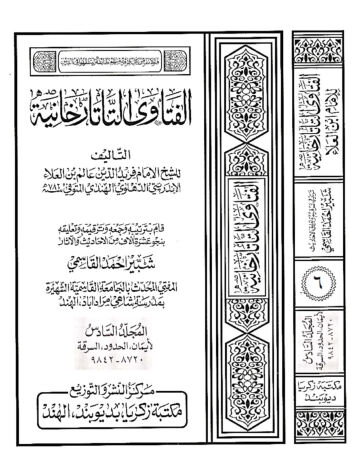 الفتاوى التاتارخانية
التاليف
للشيخ الإمام فريد الدين عالم بن العلاء
الإندربتي الدهلوي الهندي المتوفى ٧٨٦هـ
قام بترتيبه وجمعه وترقيمه وتعليقه
بنحو عشرة آلاف من الأحاديث والآثار
شبير احمد القاسمي
المفتي المحدث بالجامعة القاسمية الشهيرة
بمدرسة شاهي مراداباد، الهند
المجلد السادس
لأيمان، الحدود، السرقة
٨٧٢٠-٩٨٤٢
مركز النشر والتوزيع
مكتبة زكريا، بديوبند، الهند
الفتاوى التاتارخانية
للإمام ابن العلاء
الفتاوى التاتارخانية
شبير احمد القاسمي
٦
المجلد السادس
لأيمان، الحدود، السرقة
٨٧٢٠-٩٨٤٢
مكتبة زكريا
ديوبند